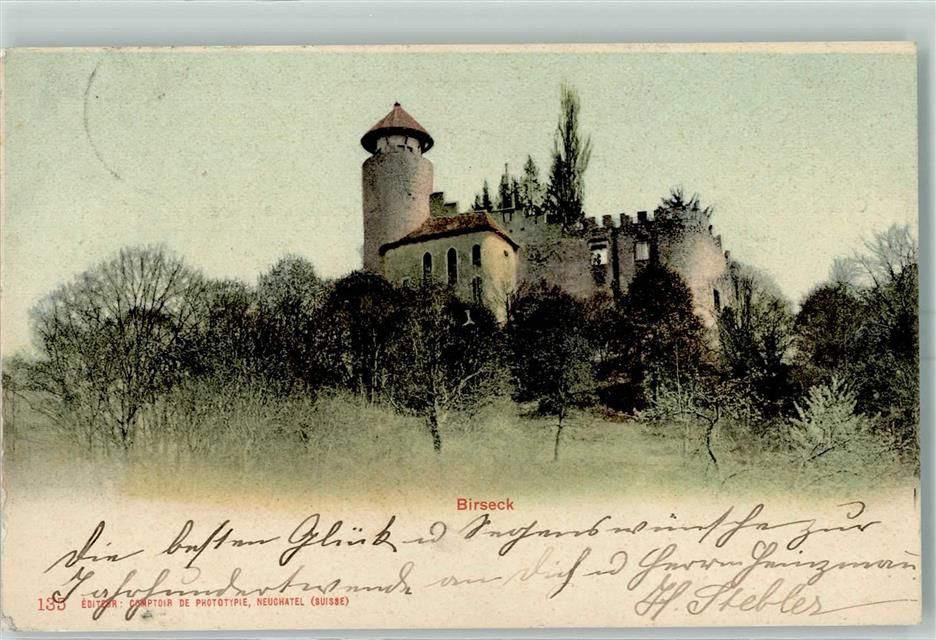 Birseck
Die besten Glück u Segenswünsche zur
Jahrhundertwende an Dich u Herrn Heinzmann
H. Stebler
135 ÉDITEUR: COMPTOIR DE PHOTOTYPIE, NEUCHATEL (SUISSE)